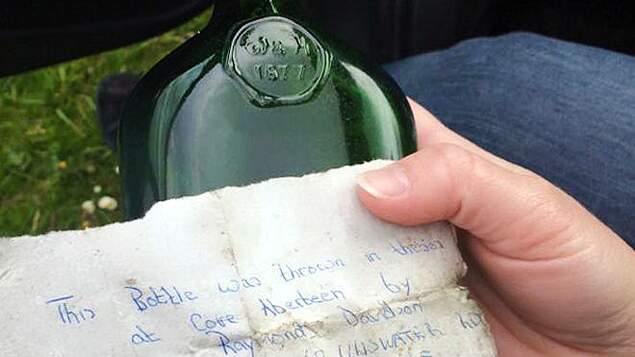 W & H
1877
This Bottle was thrown in the sea
at Cove Aberdeen by
Raymond Davidson